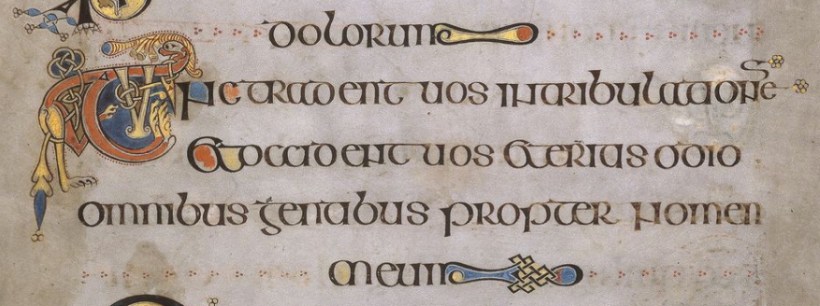 dolorum
Tunc tradent uos intribulationem
etoccident uos eteritis odio
omnibus gentibus propter nomen
meum